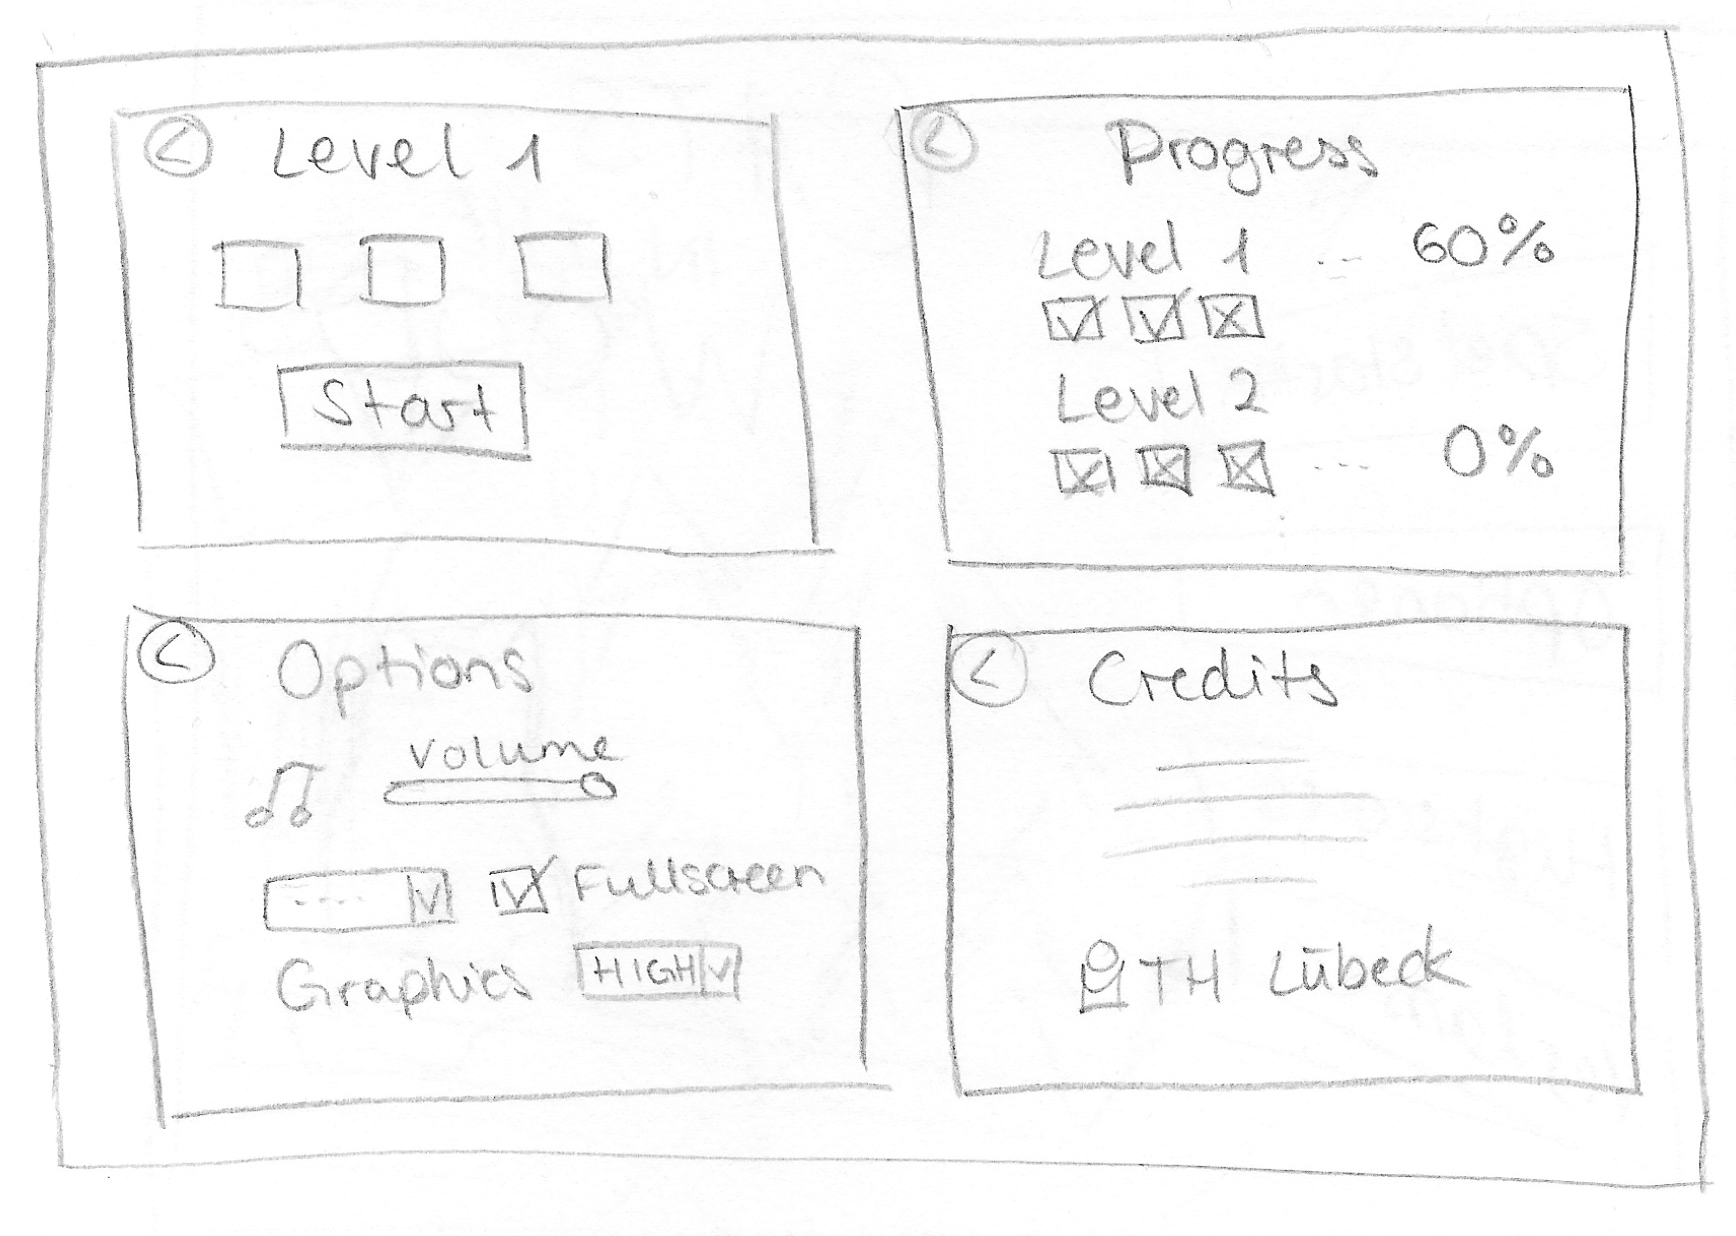 Level 1
Start
Progress
Level 1 ... 60%
Level 2
... 0%
Options
Volume
.... Fullscreen
Graphics HIGH
Credits
TH Lübeck